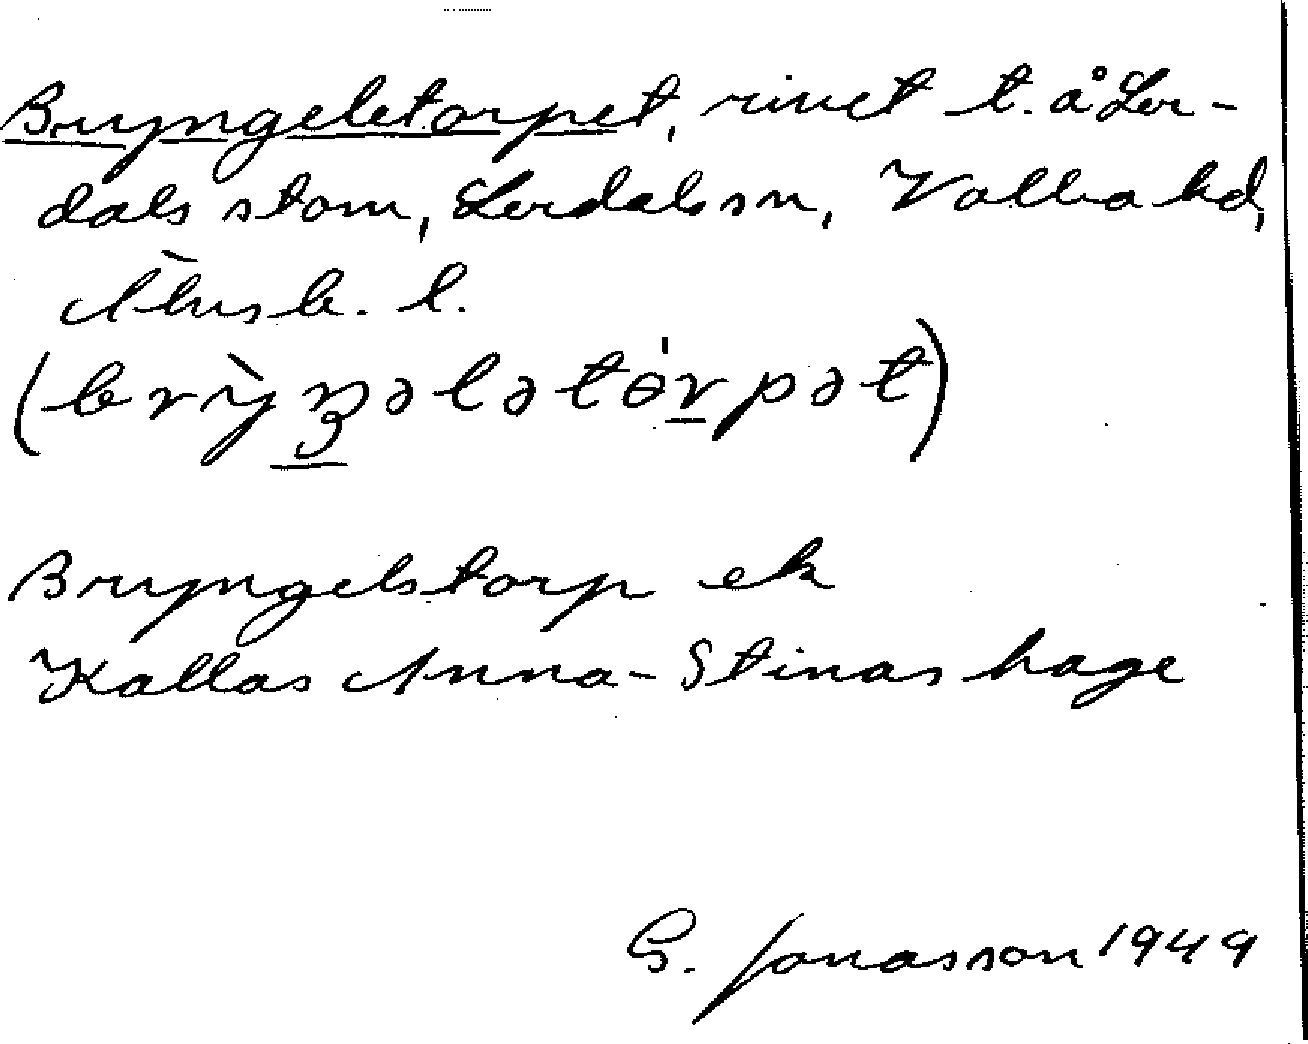 Bryngeletorpet, rivet t. å Ler-
dals stom, Lerdals sn, Valbo hd,
Älvsb. l.
(brỳŋələtɵ́rpət)
Bryngelstorp ek
Kallas Anna-Stinas hage
G. Jonasson 1949